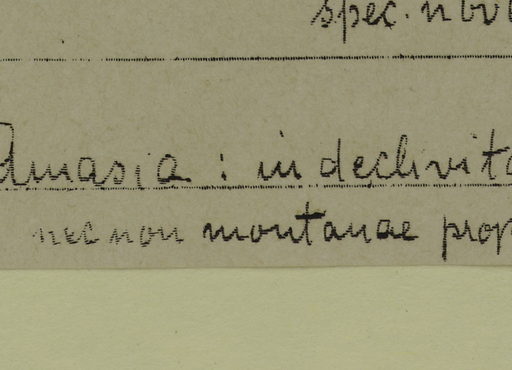 spec. nov
Amasia : in declivita
nec non montanae prop